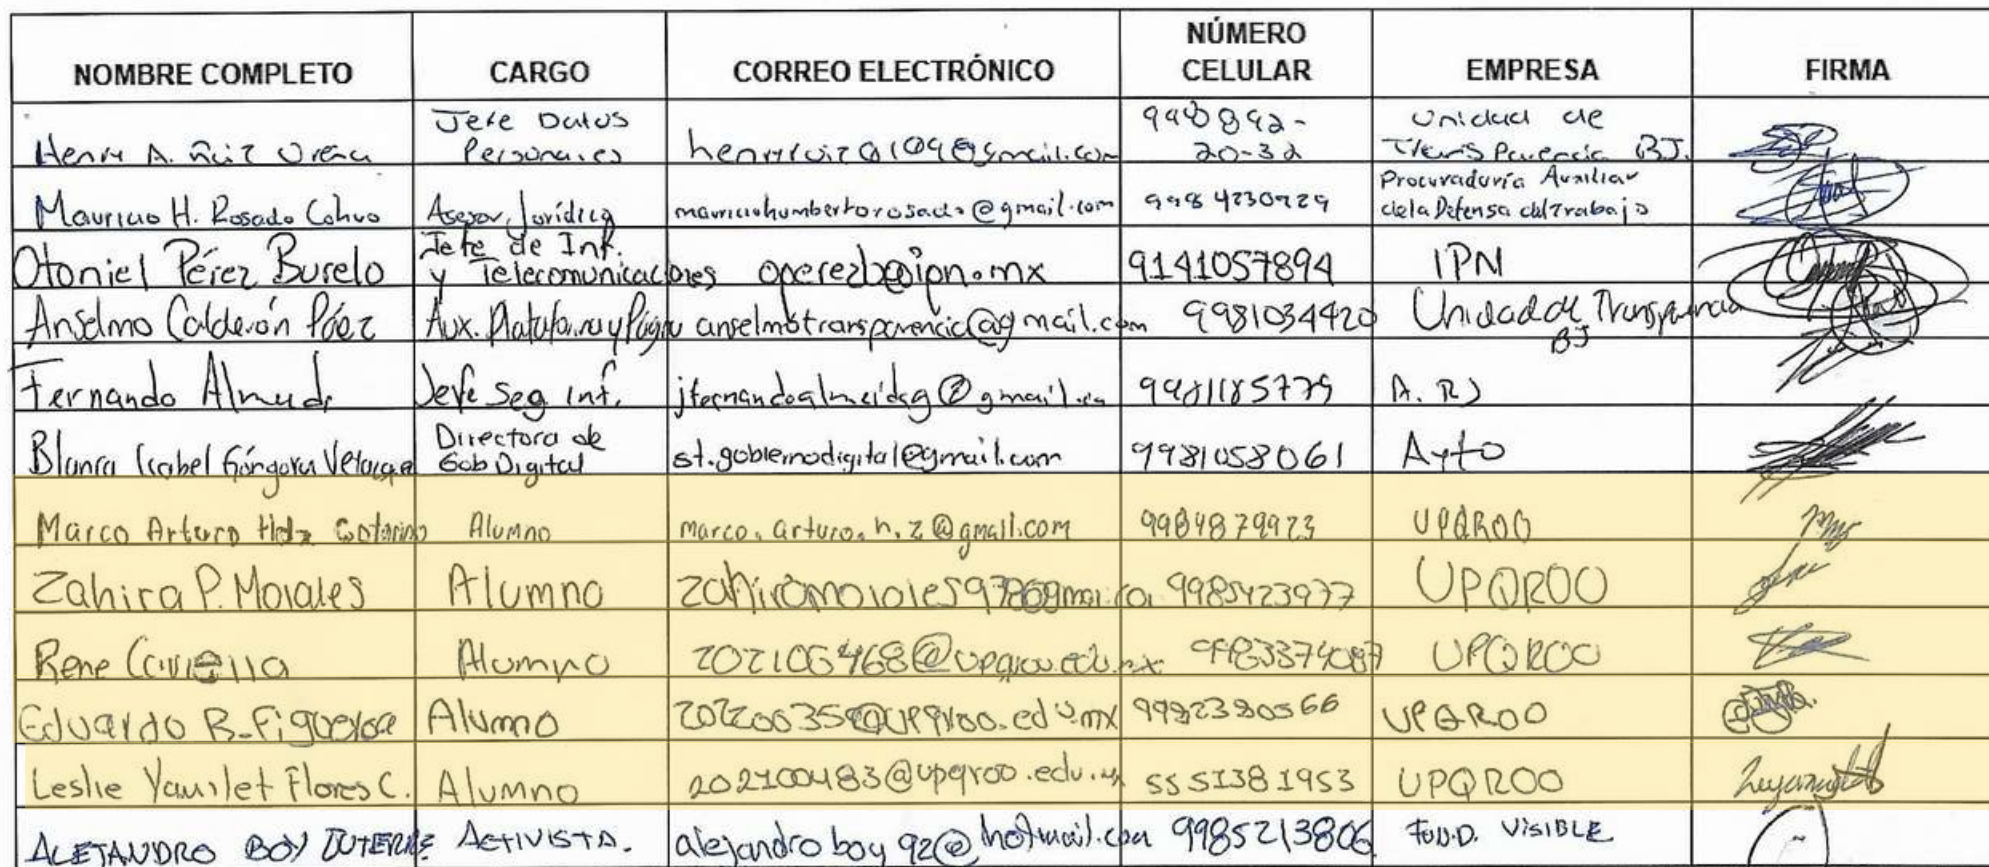 NOMBRE COMPLETO CARGO CORREO ELECTRÓNICO NÚMERO CELULAR EMPRESA FIRMA
Henry A. Ruiz Ureña Jefe Datos Personales 20-32 Unidad de Transparencia BJ.
Mauricio H. Rosado Cohuo Asesor Jurídico mauriciohumbertorosado@gmail.com 998 4230229 Procuraduría Auxiliar de la Defensa del Trabajo
Otoniel Pérez Burelo Jefe de Inf. y Telecomunicaciones operezb@ipn.mx 9141057894 IPN
Anselmo Calderón Páez Aux. Plataforma y Página anselmotransparencia@gmail.com 9981034420 Unidad de Transparencia BJ
Fernando Almeida Jefe Seg Inf. jfernandoalmeidag@gmail.com 9981185779
Blanca Isabel Góngora Directora de Gob Digital st.gobiernodigital@gmail.com 9981058061 Ayto
Marco Arturo Hdz Alumno marco.arturo.h.z@gmail.com 9984879923 UPQROO
Zahira P. Morales Alumno 9985423977 UPQROO
Rene Alumno 202106468@upqroo.edu.mx 9983374087 UPQROO
Eduardo R. Figueroa Alumno 9982380566 UPQROO
Leslie Yamilet Flores C. Alumno 202100483@upqroo.edu.mx 5551381953 UPQROO
ALEJANDRO BOY ACTIVISTA. alejandroboy92@hotmail.com 9985213806 FUND. VISIBLE